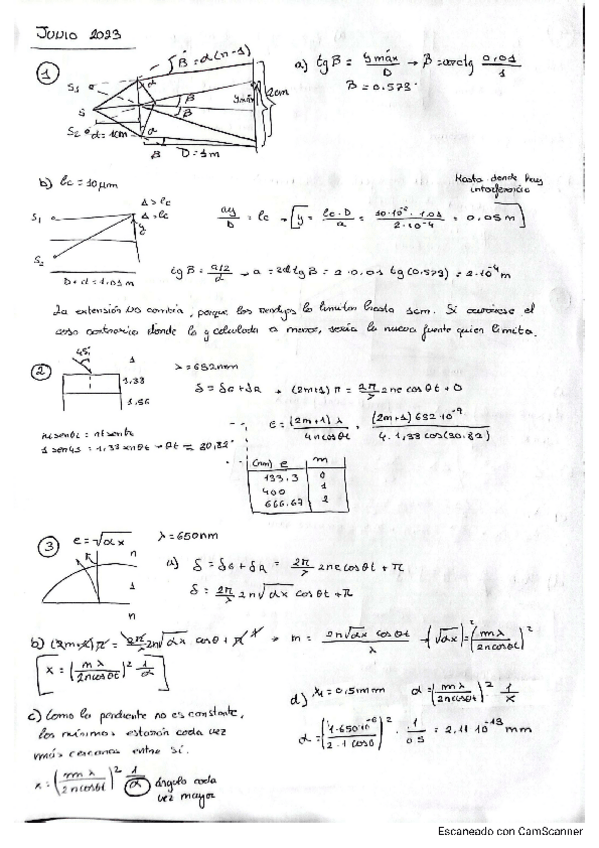 JUNIO 2023
1
B = α(n-1)
S1
S
S2
d=1cm
α
α
B
B
B
ymáx
2cm
D=1m
a) tg B = ymáx / D → B = arctg 0,01 / 1
B = 0.573°
b) lc = 10 μm
Hasta donde hay interferencia
S1
S2
Δ > lc
Δ = lc
y
D+d = 1.01 m
ay / D = lc → [y = lc·D / a = 10·10^-6 · 1.01 / 2·10^-4 = 0,05 m]
tg B = a/2 / d → a = 2d tg B = 2·0,01 tg(0.573) = 2·10^-4 m
La extensión no cambia, porque los rendijas lo limitan hasta 1cm. Si
caso contrario donde la y calculada a menor, sería la nueva fuente quien limita.
2
45°
1
1,38
λ = 632nm
δ = δG + δR → (2m+1) π = 2π/λ 2ne cos θt + 0
ni sen θi = nt sen θt
1 sen 45 = 1,38 sen θt → θt = 30,82°
e = (2m+1) λ / 4n cos θt = (2m+1) 632·10^-9 / 4·1,38 cos(30.82)
(nm) e | m
133.3 | 0
400 | 1
666.67 | 2
3
e = √αx
n
1
n
λ = 650nm
a) δ = δG + δR = 2π/λ 2ne cos θt + π
δ = 2π/λ 2n √αx cos θt + π
b) m = 2n√αx cos θt / λ → (√αx)² = (mλ / 2n cos θt)²
[x = (mλ / 2n cos θt)² 1/α]
c) Como la pendiente no es constante,
los mínimos estarán cada vez
más cercanos entre sí.
x = (mλ / 2n cos θt)² 1/α ángulo cada vez mayor
d) x1 = 0,5mm α = (mλ / 2n cos θt)² 1/x
α = (1·650·10^-6 / 2·1 cos 0)² · 1/0.5 = 2.11·10^-13 mm
Escaneado con CamScanner